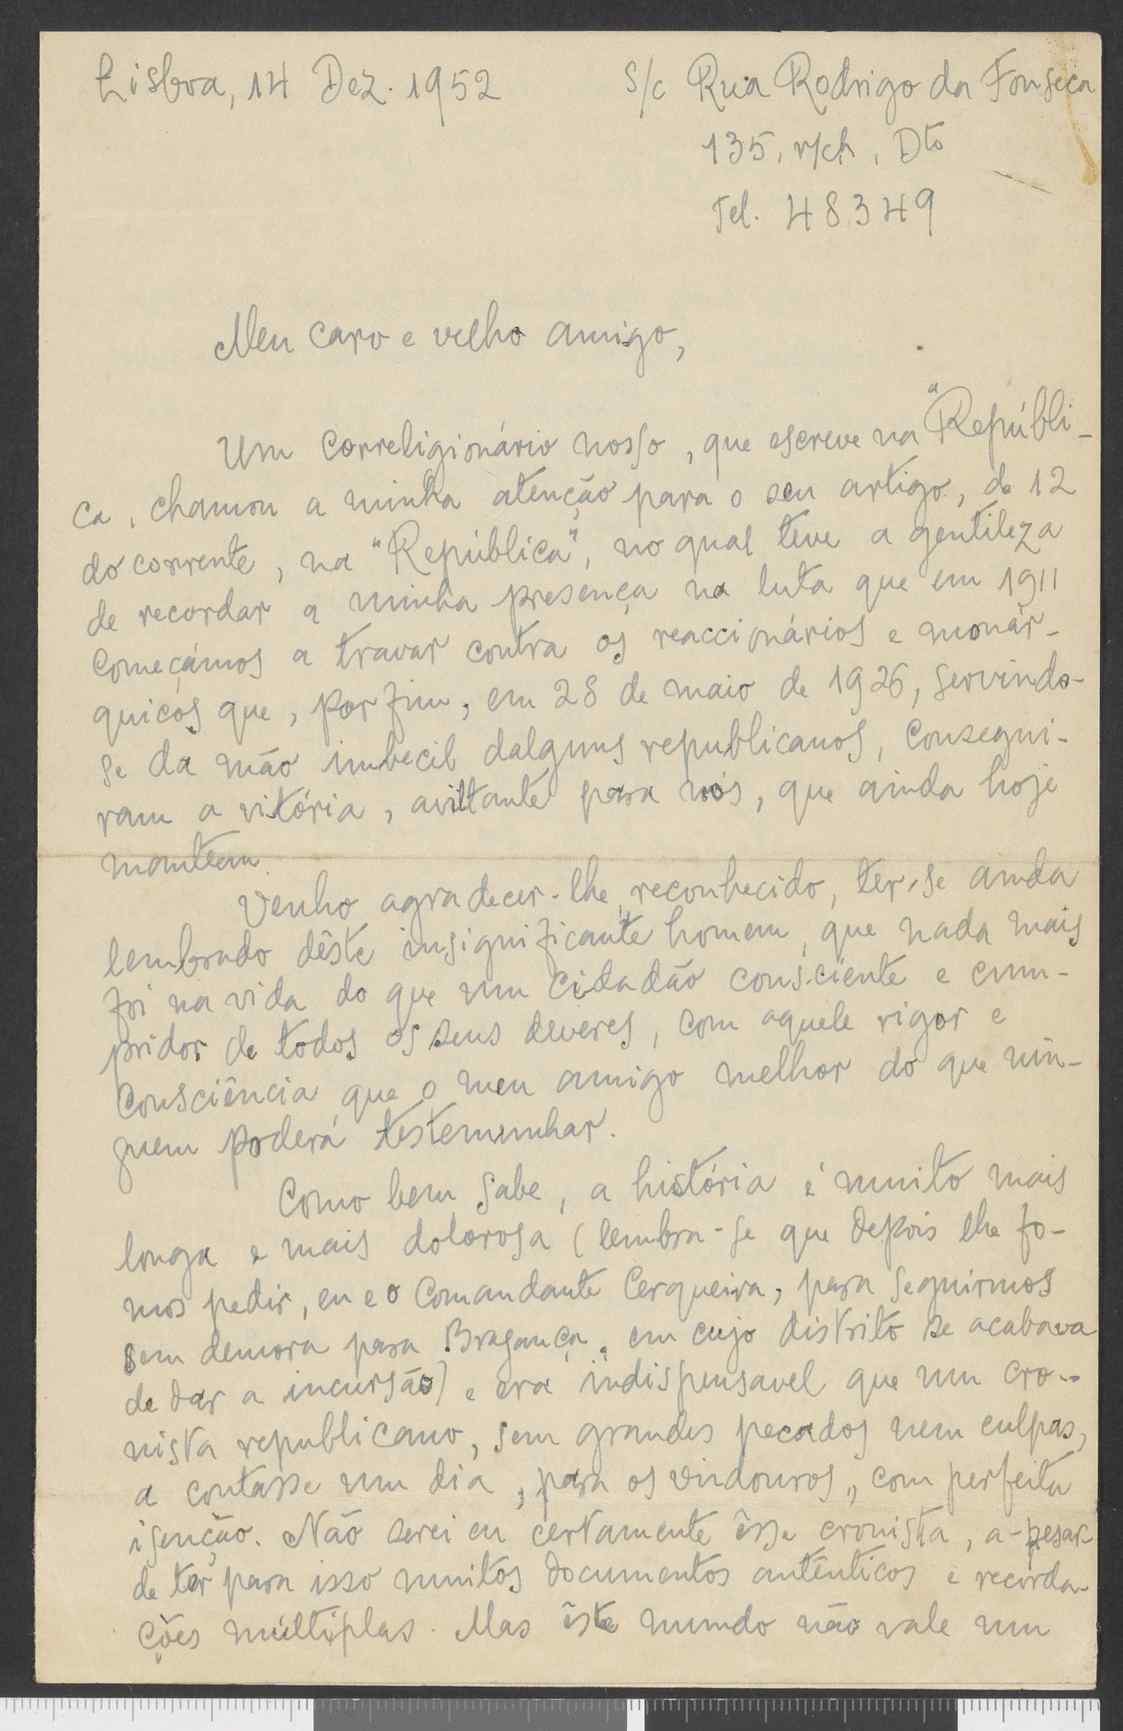 Lisboa, 14 Dez. 1952
S/c Rua Rodrigo da Fonseca
135, r/ch, Dto
Tel. 48349
Meu caro e velho amigo,
Um correligionário nosso, que escreve na "Repúbli-
ca, chamou a minha atenção para o seu artigo, de 12
do corrente, na "República", no qual teve a gentileza
de recordar a minha presença na luta que em 1911
começámos a travar contra os reaccionários e monár-
quicos que, por fim, em 28 de maio de 1926, servindo-
se da mão imbecil dalguns republicanos, consegui-
ram a vitória, aviltante para nós, que ainda hoje
mantem.
Venho agradecer-lhe, reconhecido, ter-se ainda
lembrado dêste insignificante homem, que nada mais
foi na vida do que um cidadão consciente e cum-
pridor de todos os seus deveres, com aquele rigor e
consciência que o meu amigo melhor do que nin-
guem poderá testemunhar.
Como bem sabe, a história é muito mais
longa e mais dolorosa (lembra-se que depois lhe fo-
mos pedir, eu e o Comandante Cerqueira, para seguirmos
sem demora para Bragança, em cujo distrito se acabava
de dar a incursão) e era indispensavel que um cro-
nista republicano, sem grandes pecados nem culpas,
a contasse um dia, para os vindouros, com perfeita
isenção. Não serei eu certamente êsse cronista, a-pesar
de ter para isso muitos documentos autênticos e recorda-
ções múltiplas. Mas êste mundo não vale um